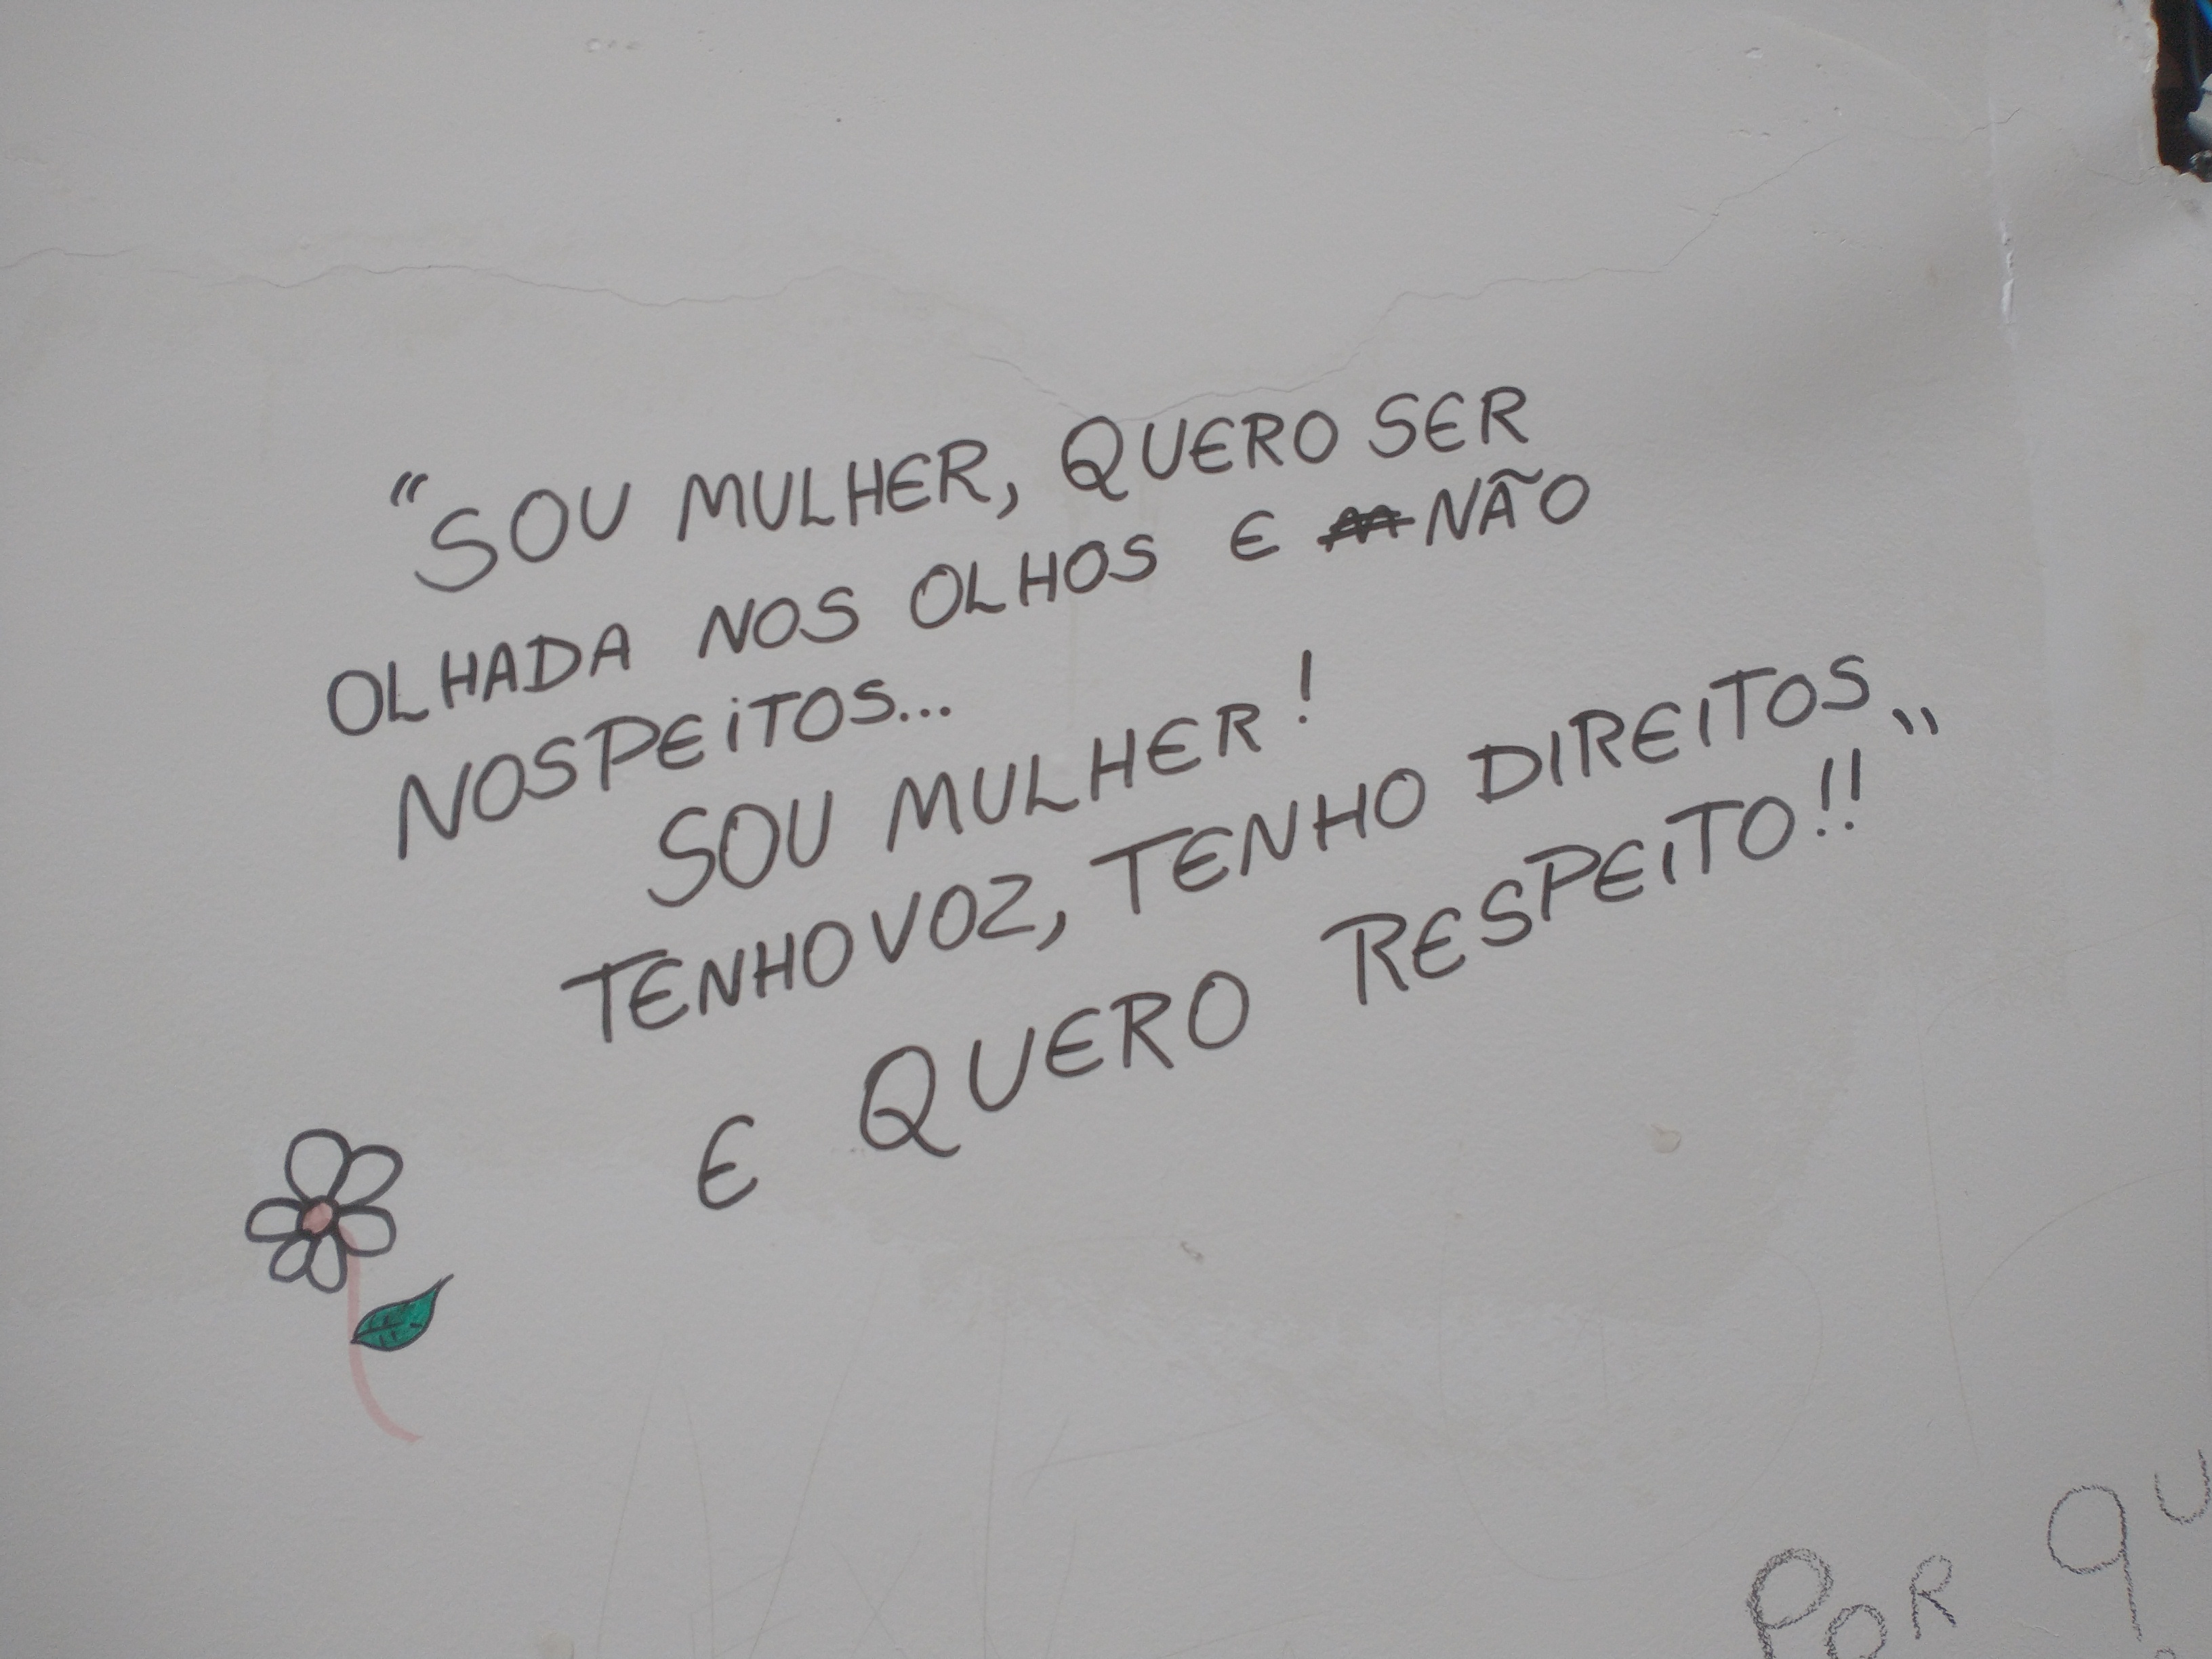 “SOU MULHER, QUERO SER
OLHADA NOS OLHOS E NÃO
NOS PEITOS...
SOU MULHER!
TENHO VOZ, TENHO DIREITOS„
E QUERO RESPEITO!!
POR QU